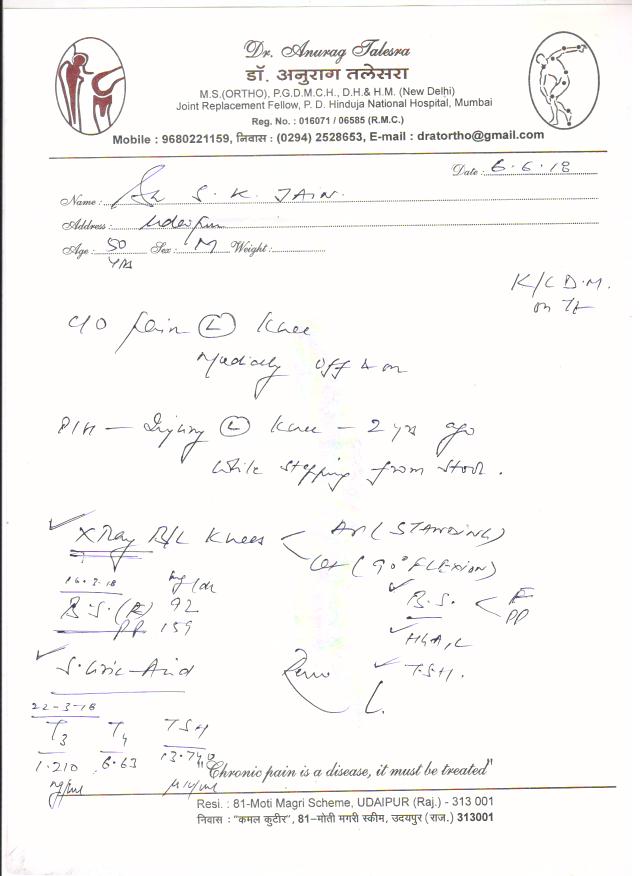 Dr. Anurag Talesra
डॉ. अनुराग तलेसरा
M.S.(ORTHO), P.G.D.M.C.H., D.H.& H.M. (New Delhi)
Joint Replacement Fellow, P. D. Hinduja National Hospital, Mumbai
Reg. No. : 016071 / 06585 (R.M.C.)
Mobile : 9680221159, निवास : (0294) 2528653, E-mail : dratortho@gmail.com
Date : 6.6.18
Name : S. K. JAIN.
Address : Udaipur
Age : 50 yrs Sex : M Weight :
K/C D.M.
on Tt
C/O Pain (L) Knee
Medially off & on
P/H — Injury (L) Knee — 2 yrs ago
while stepping from stool.
X Ray B/L Knees < AP (STANDING)
Lat (90° FLEXION)
16.3.18 mg/dl
B.S. (F) 92
PP 159
B.S. < F
PP
HbA1C
S. Uric Acid
T.S.H.
22-3-18
T3 T4 TSH
1.210 6.63 13.740
ng/ml µIU/ml
"Chronic pain is a disease, it must be treated"
Resi. : 81-Moti Magri Scheme, UDAIPUR (Raj.) - 313 001
निवास : "कमल कुटीर", 81–मोती मगरी स्कीम, उदयपुर (राज.) 313001